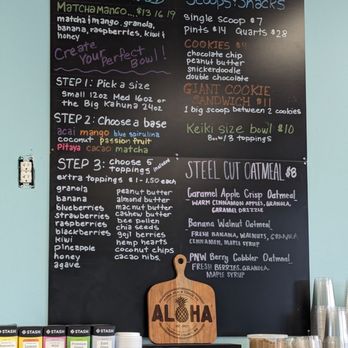 Matcha Mango... $13 16 19
matcha, mango, granola,
banana, raspberries, kiwi &
honey
Create Your
Perfect Bowl!
STEP 1: Pick a size
Small 12oz Med 16oz or
the Big Kahuna 24oz
STEP 2: Choose a base
acai mango blue spirulina
coconut passion fruit
Pitaya cacao matcha
STEP 3: Choose 5
toppings included
extra toppings $1-1.50 each
granola
banana
blueberries
strawberries
raspberries
blackberries
kiwi
pineapple
honey
agave
peanut butter
almond butter
mac nut butter
cashew butter
bee pollen
chia seeds
goji berries
hemp hearts
coconut chips
cacao nibs
Scoops & Snacks
Single Scoop $7
Pints $14 Quarts $28
COOKIES $4
chocolate chip
peanut butter
snickerdoodle
double chocolate
GIANT COOKIE
SANDWICH $11
1 big scoop between 2 cookies
Keiki size bowl $10
8oz w/3 toppings
STEEL CUT OATMEAL $8
Caramel Apple Crisp Oatmeal
WARM CINNAMON APPLES, GRANOLA,
CARAMEL DRIZZLE
Banana Walnut Oatmeal
FRESH BANANA, WALNUTS, GRANOLA
CINNAMON, MAPLE SYRUP
PNW Berry Cobbler Oatmeal
FRESH BERRIES, GRANOLA,
MAPLE SYRUP
ALOHA
STASH
STASH
STASH
STASH
STASH